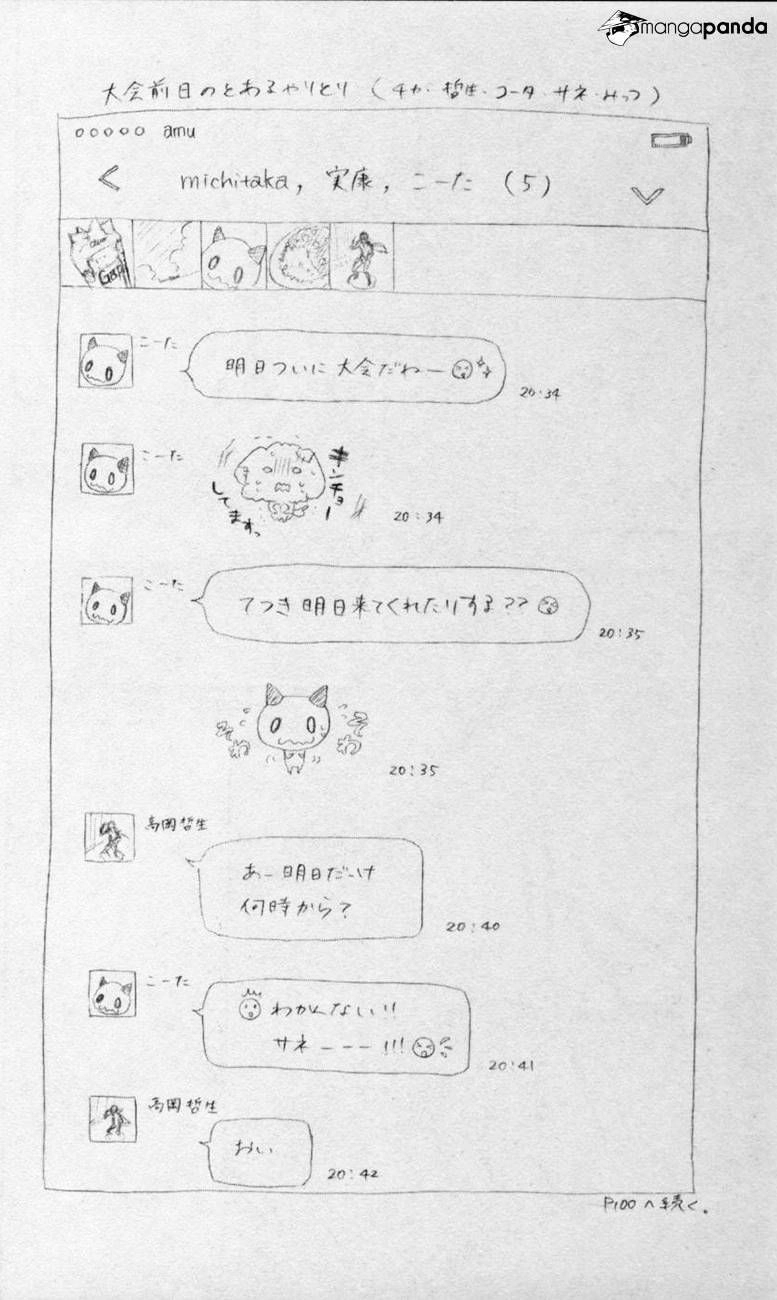 mangapanda
大会前日のとあるやりとり (チカ・哲生・コータ・サネ・みっつ)
ooooo amu
< michitaka, 実康, こーた (5)
こーた
明日ついに大会だねー
20:34
こーた
キンチョー
してますっ
20:34
こーた
てつき明日来てくれたりする??
20:35
そわ
そわ
20:35
高岡哲生
あー明日だっけ
何時から?
20:40
こーた
わかんない!!
サネーーー!!!
20:41
高岡哲生
おい
20:42
P100へ続く。